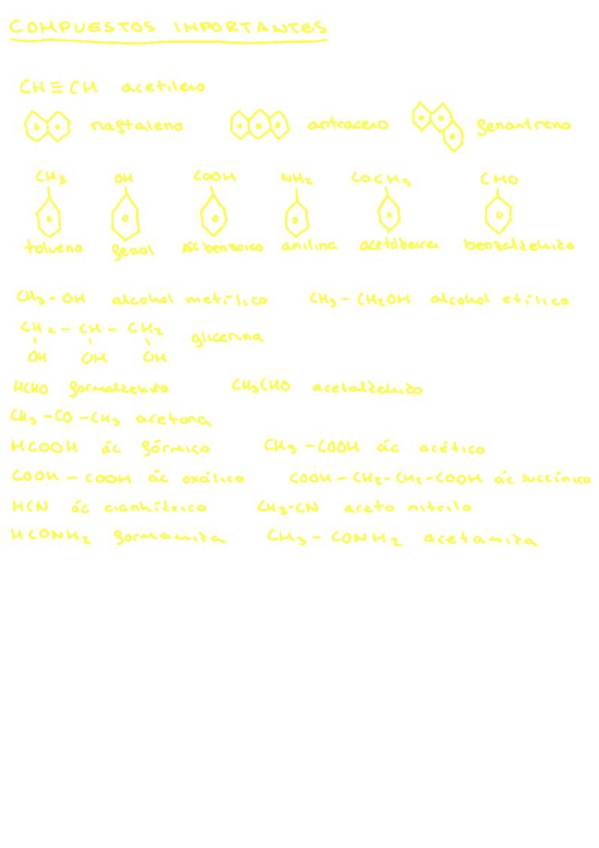 COMPUESTOS IMPORTANTES
CH≡CH acetileno
naftaleno antraceno fenantreno
CH3 OH COOH NH2 COCH3 CHO
tolueno fenol ác benzoico anilina benzaldehído
CH3-OH alcohol metílico CH3-CH2OH alcohol etílico
CH2-CH-CH2 glicerina
OH OH OH
HCHO formaldehído CH3CHO acetaldehído
CH3-CO-CH3 acetona
HCOOH ác fórmico CH3-COOH ác acético
COOH-COOH ác oxálico COOH-CH2-CH2-COOH ác succínico
HCN ác cianhídrico CH3-CN aceto nitrilo
HCONH2 formamida CH3-CONH2 acetamida